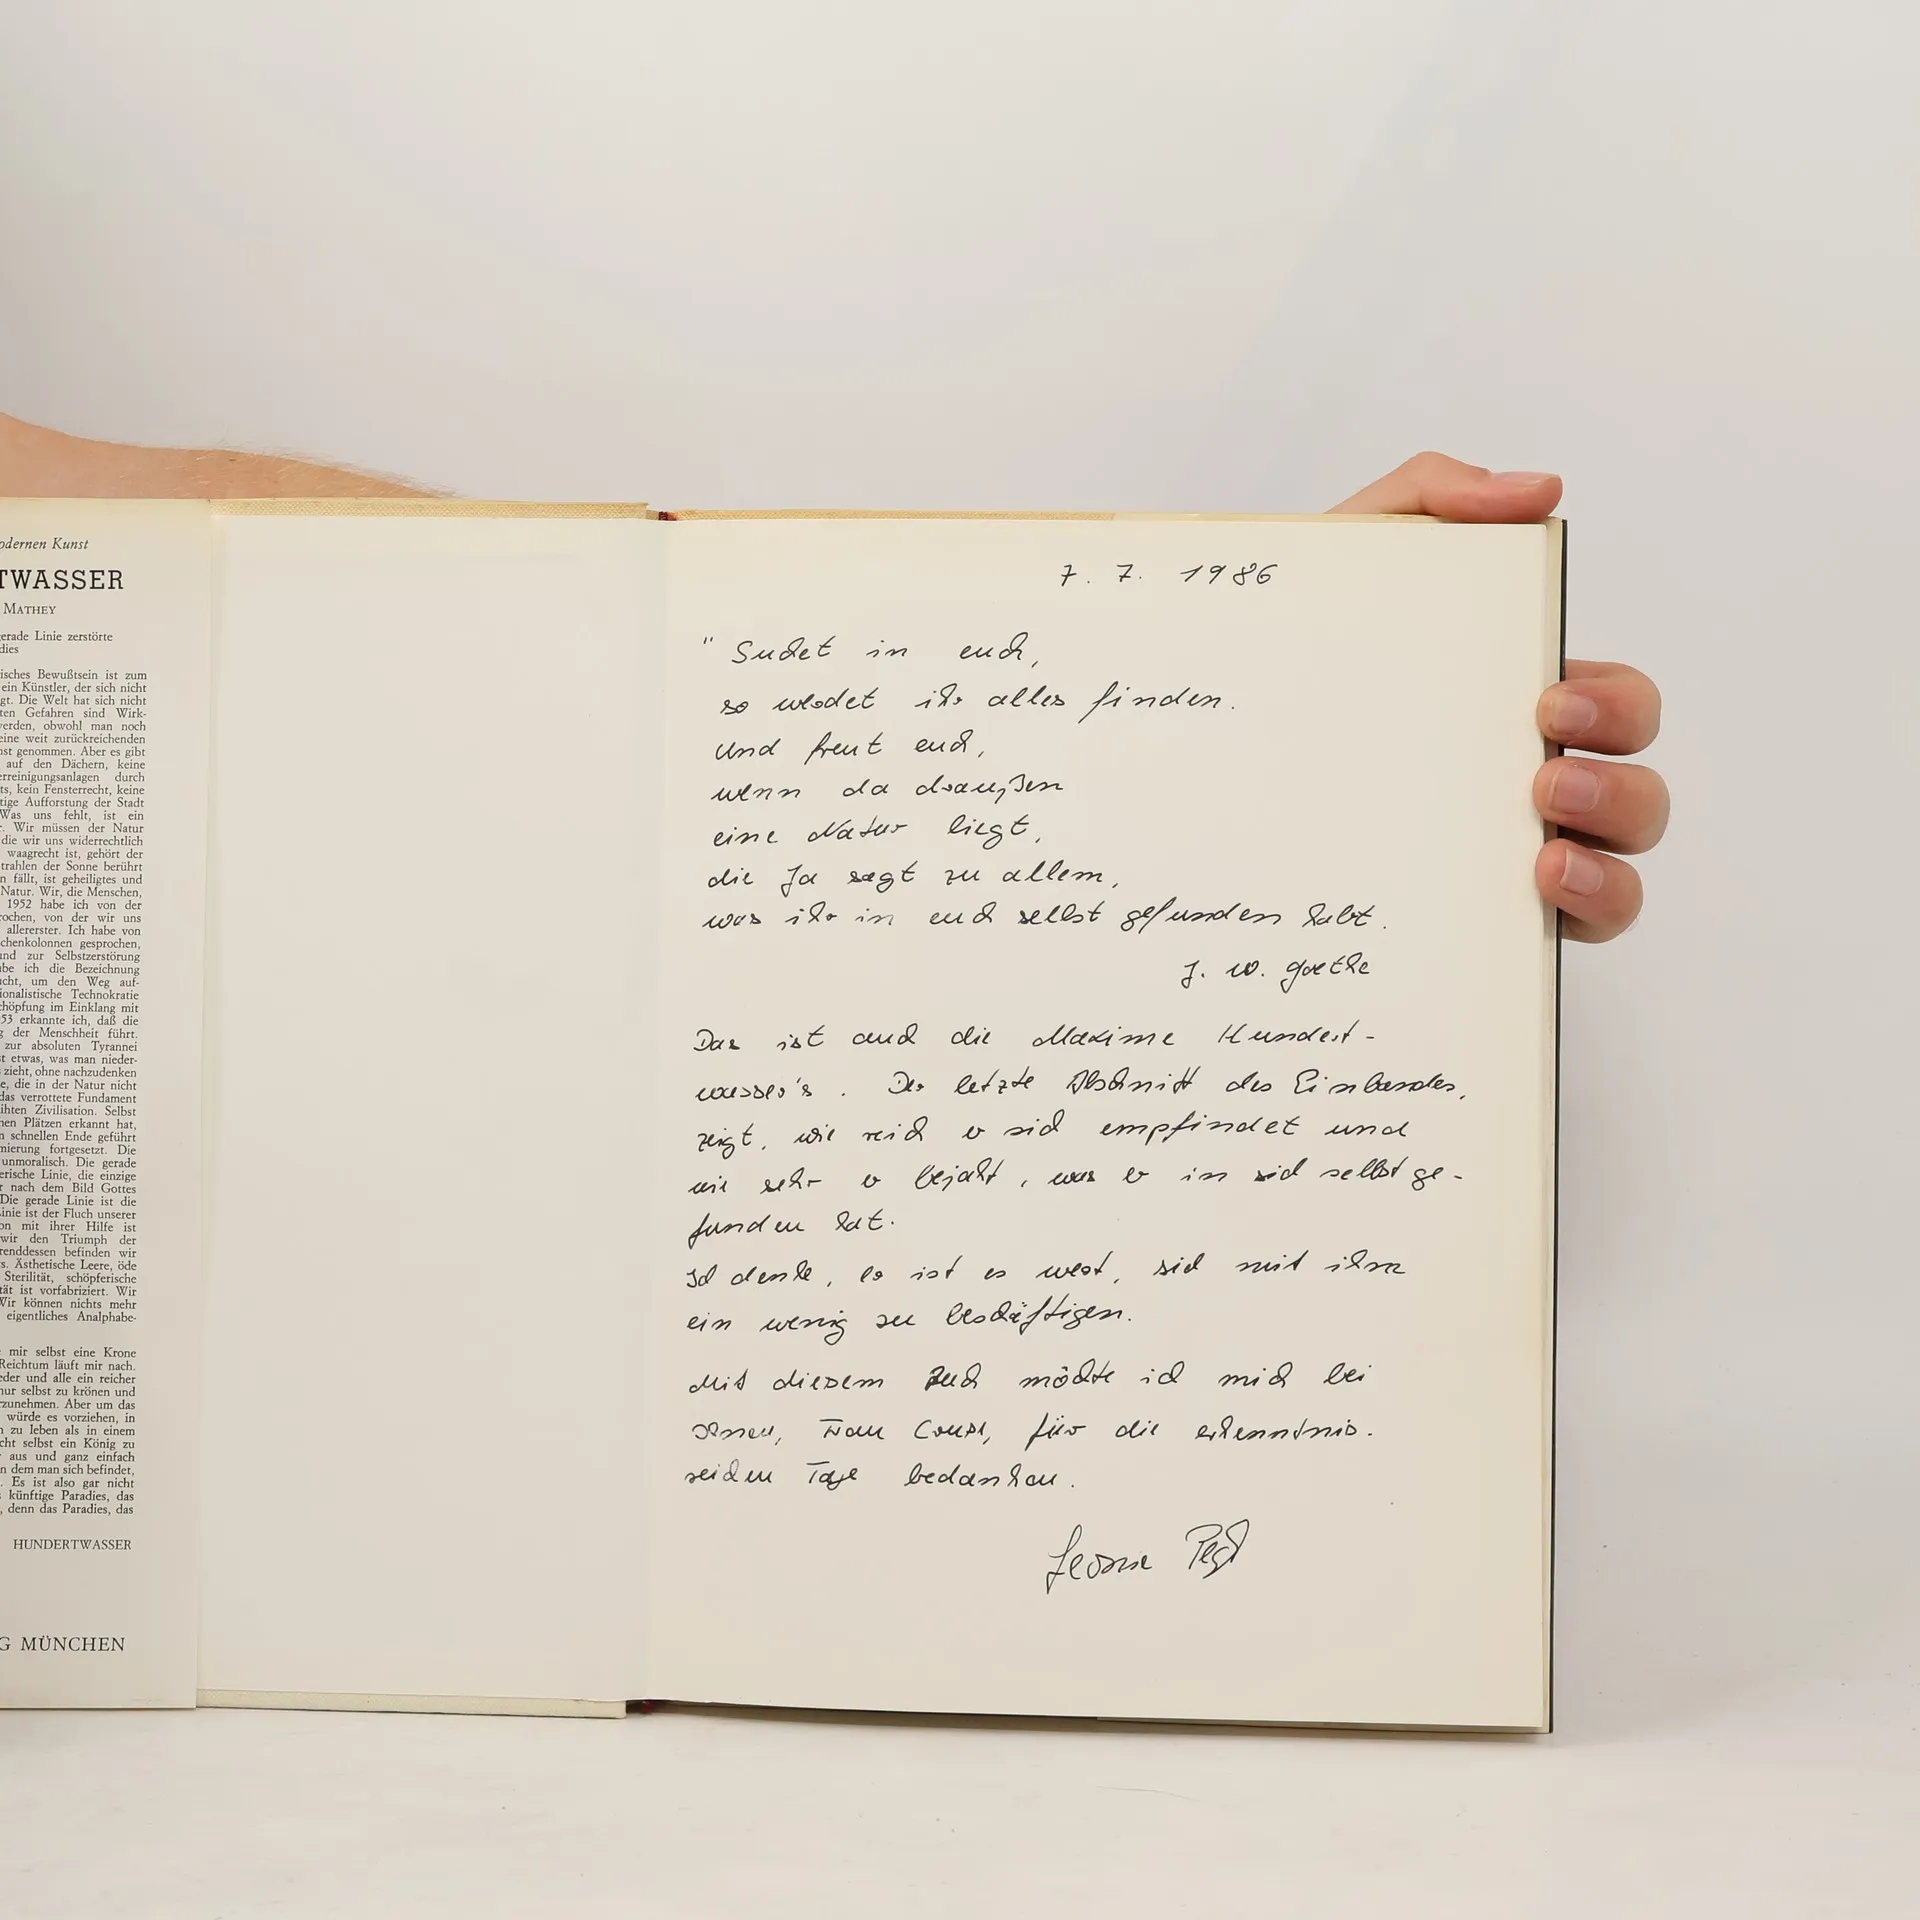 odernen Kunst
TWASSER
MATHEY
erade Linie zerstörte
dies
isches Bewußtsein ist zum
ein Künstler, der sich nicht
gt. Die Welt hat sich nicht
ten Gefahren sind Wirk-
werden, obwohl man noch
eine weit zurückreichenden
nst genommen. Aber es gibt
auf den Dächern, keine
erreinigungsanlagen durch
ts, kein Fensterrecht, keine
tige Aufforstung der Stadt
Was uns fehlt, ist ein
r. Wir müssen der Natur
die wir uns widerrechtlich
waagrecht ist, gehört der
trahlen der Sonne berührt
n fällt, ist geheiligtes und
Natur. Wir, die Menschen,
1952 habe ich von der
rochen, von der wir uns
allererster. Ich habe von
chenkolonnen gesprochen,
und zur Selbstzerstörung
abe ich die Bezeichnung
ucht, um den Weg auf-
ionalistische Technokratie
chöpfung im Einklang mit
53 erkannte ich, daß die
g der Menschheit führt.
zur absoluten Tyrannei
st etwas, was man nieder-
zieht, ohne nachzudenken
e, die in der Natur nicht
das verrottete Fundament
ihten Zivilisation. Selbst
nen Plätzen erkannt hat,
n schnellen Ende geführt
mierung fortgesetzt. Die
unmoralisch. Die gerade
erische Linie, die einzige
r nach dem Bild Gottes
Die gerade Linie ist die
Linie ist der Fluch unserer
on mit ihrer Hilfe ist
wir den Triumph der
renddessen befinden wir
s. Ästhetische Leere, öde
Sterilität, schöpferische
tät ist vorfabriziert. Wir
Wir können nichts mehr
eigentliches Analphabe-
mir selbst eine Krone
Reichtum läuft mir nach.
eder und alle ein reicher
nur selbst zu krönen und
rzunehmen. Aber um das
würde es vorziehen, in
n zu leben als in einem
cht selbst ein König zu
aus und ganz einfach
n dem man sich befindet,
Es ist also gar nicht
künftige Paradies, das
, denn das Paradies, das
HUNDERTWASSER
G MÜNCHEN
7. 7. 1986
" Suchet in euch,
so werdet ihr alles finden.
Und freut euch,
wenn da draußen
eine Natur liegt,
die Ja sagt zu allem,
was ihr in euch selbst gefunden habt.
J. W. Goethe
Das ist auch die Maxime Hundert-
wasser's. Der letzte Abschnitt des Einbandes,
zeigt, wie reich er sich empfindet und
wie sehr er bejaht, was er in sich selbst ge-
funden hat.
Ich denke, es ist es wert, sich mit ihm
ein wenig zu beschäftigen.
Mit diesem Buch möchte ich mich bei
Ihnen, Frau für die erkenntnis-
reichen Tage bedanken.
Leonie